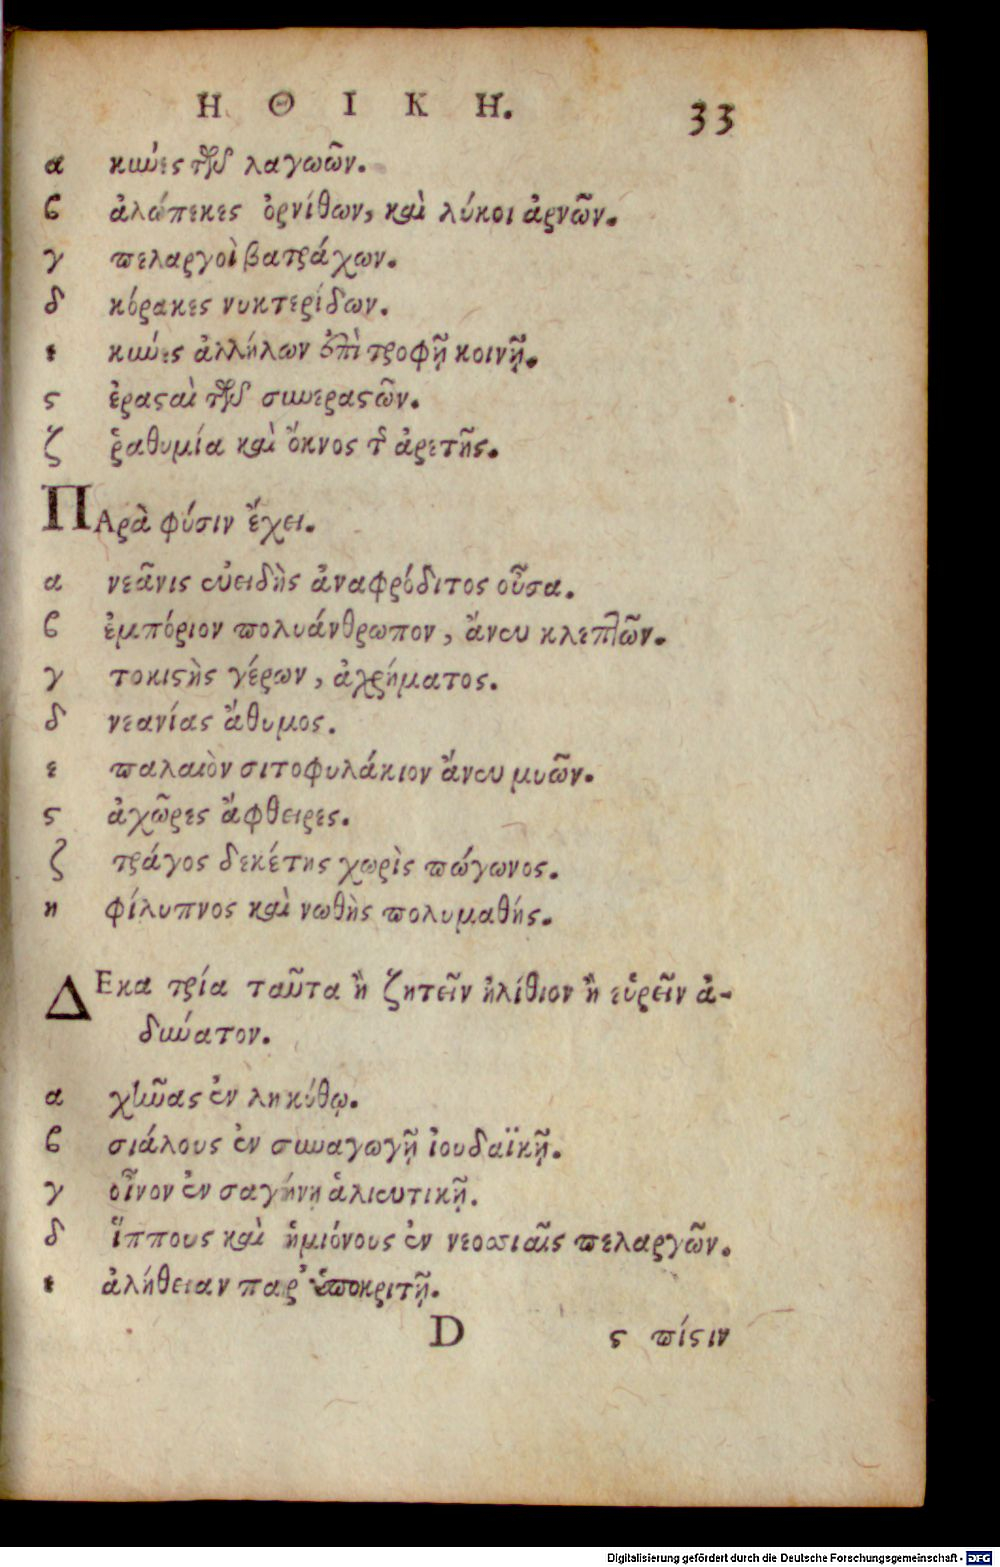 ΗΘΙΚΗ. 33
α κύνες τῶν λαγωῶν.
β ἀλώπεκες ὀρνίθων, καὶ λύκοι ἀρνῶν.
γ πελαργοὶ βατράχων.
δ κόρακες νυκτερίδων.
ε κύνες ἀλλήλων ἐπὶ τροφῇ κοινῇ.
ϛ ἐρασταὶ τῶν συνεραστῶν.
ζ ῥαθυμία καὶ ὄκνος τῆς ἀρετῆς.
ΠΑρὰ φύσιν ἔχει.
α νεᾶνις εὐειδὴς ἀναφρόδιτος οὖσα.
β ἐμπόριον πολυάνθρωπον, ἄνευ κλεπτῶν.
γ τοκιστὴς γέρων, ἀχρήματος.
δ νεανίας ἄθυμος.
ε παλαιὸν σιτοφυλάκιον ἄνευ μυῶν.
ϛ ἀχῶρες ἄφθειρες.
ζ τράγος δεκέτης χωρὶς πώγωνος.
η φίλυπνος καὶ νωθὴς πολυμαθής.
ΔΕκα τρία ταῦτα ἢ ζητεῖν ἠλίθιον ἢ εὑρεῖν ἀ-
δύνατον.
α χῆνας ἐν ληκύθῳ.
β σιάλους ἐν συναγωγῇ ἰουδαϊκῇ.
γ οἶνον ἐν σαγήνῃ ἁλιευτικῇ.
δ ἵππους καὶ ἡμιόνους ἐν νεοσσιαῖς πελαργῶν.
ε ἀλήθειαν παρ' ὑποκριτῇ.
D ϛ πίστιν
Digitalisierung gefördert durch die Deutsche Forschungsgemeinschaft - DFG